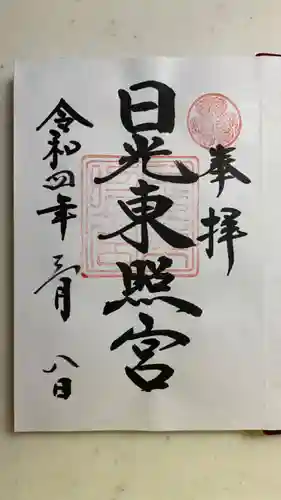 奉拝
日光東照宮
令和四年三月八日